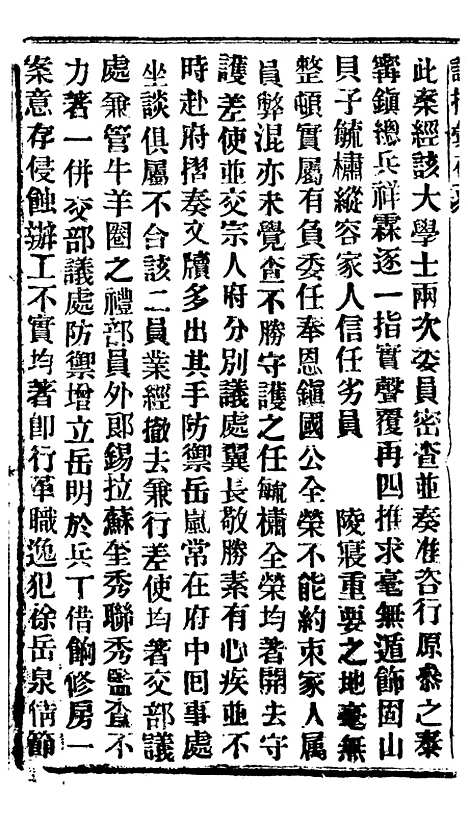 此案經該大學士兩次委員密查並奏准咨行原叅之泰
寧鎮總兵祥霖逐一指實聲覆再四推求毫無遁飾固山
貝子毓橚縱容家人信任劣員　　陵寢重要之地毫無
整頓實屬有負委任奉恩鎮國公全榮不能約束家人屬
員弊混亦未覺查不勝守護之任毓橚全榮均著開去守
護差使並交宗人府分別議處翼長敬勝素有心疾並不
時赴府摺奏文牘多出其手防禦岳嵐常在府中回事處
坐談俱屬不合該二員業經撤去兼行差使均著交部議
處兼管牛羊圈之禮部員外郎錫拉蘇奎秀聯秀監查不
力著一併交部議處防禦增立岳明於兵丁借餉修房一
案意存侵蝕辦工不實均著卽行革職逸犯徐岳泉情節